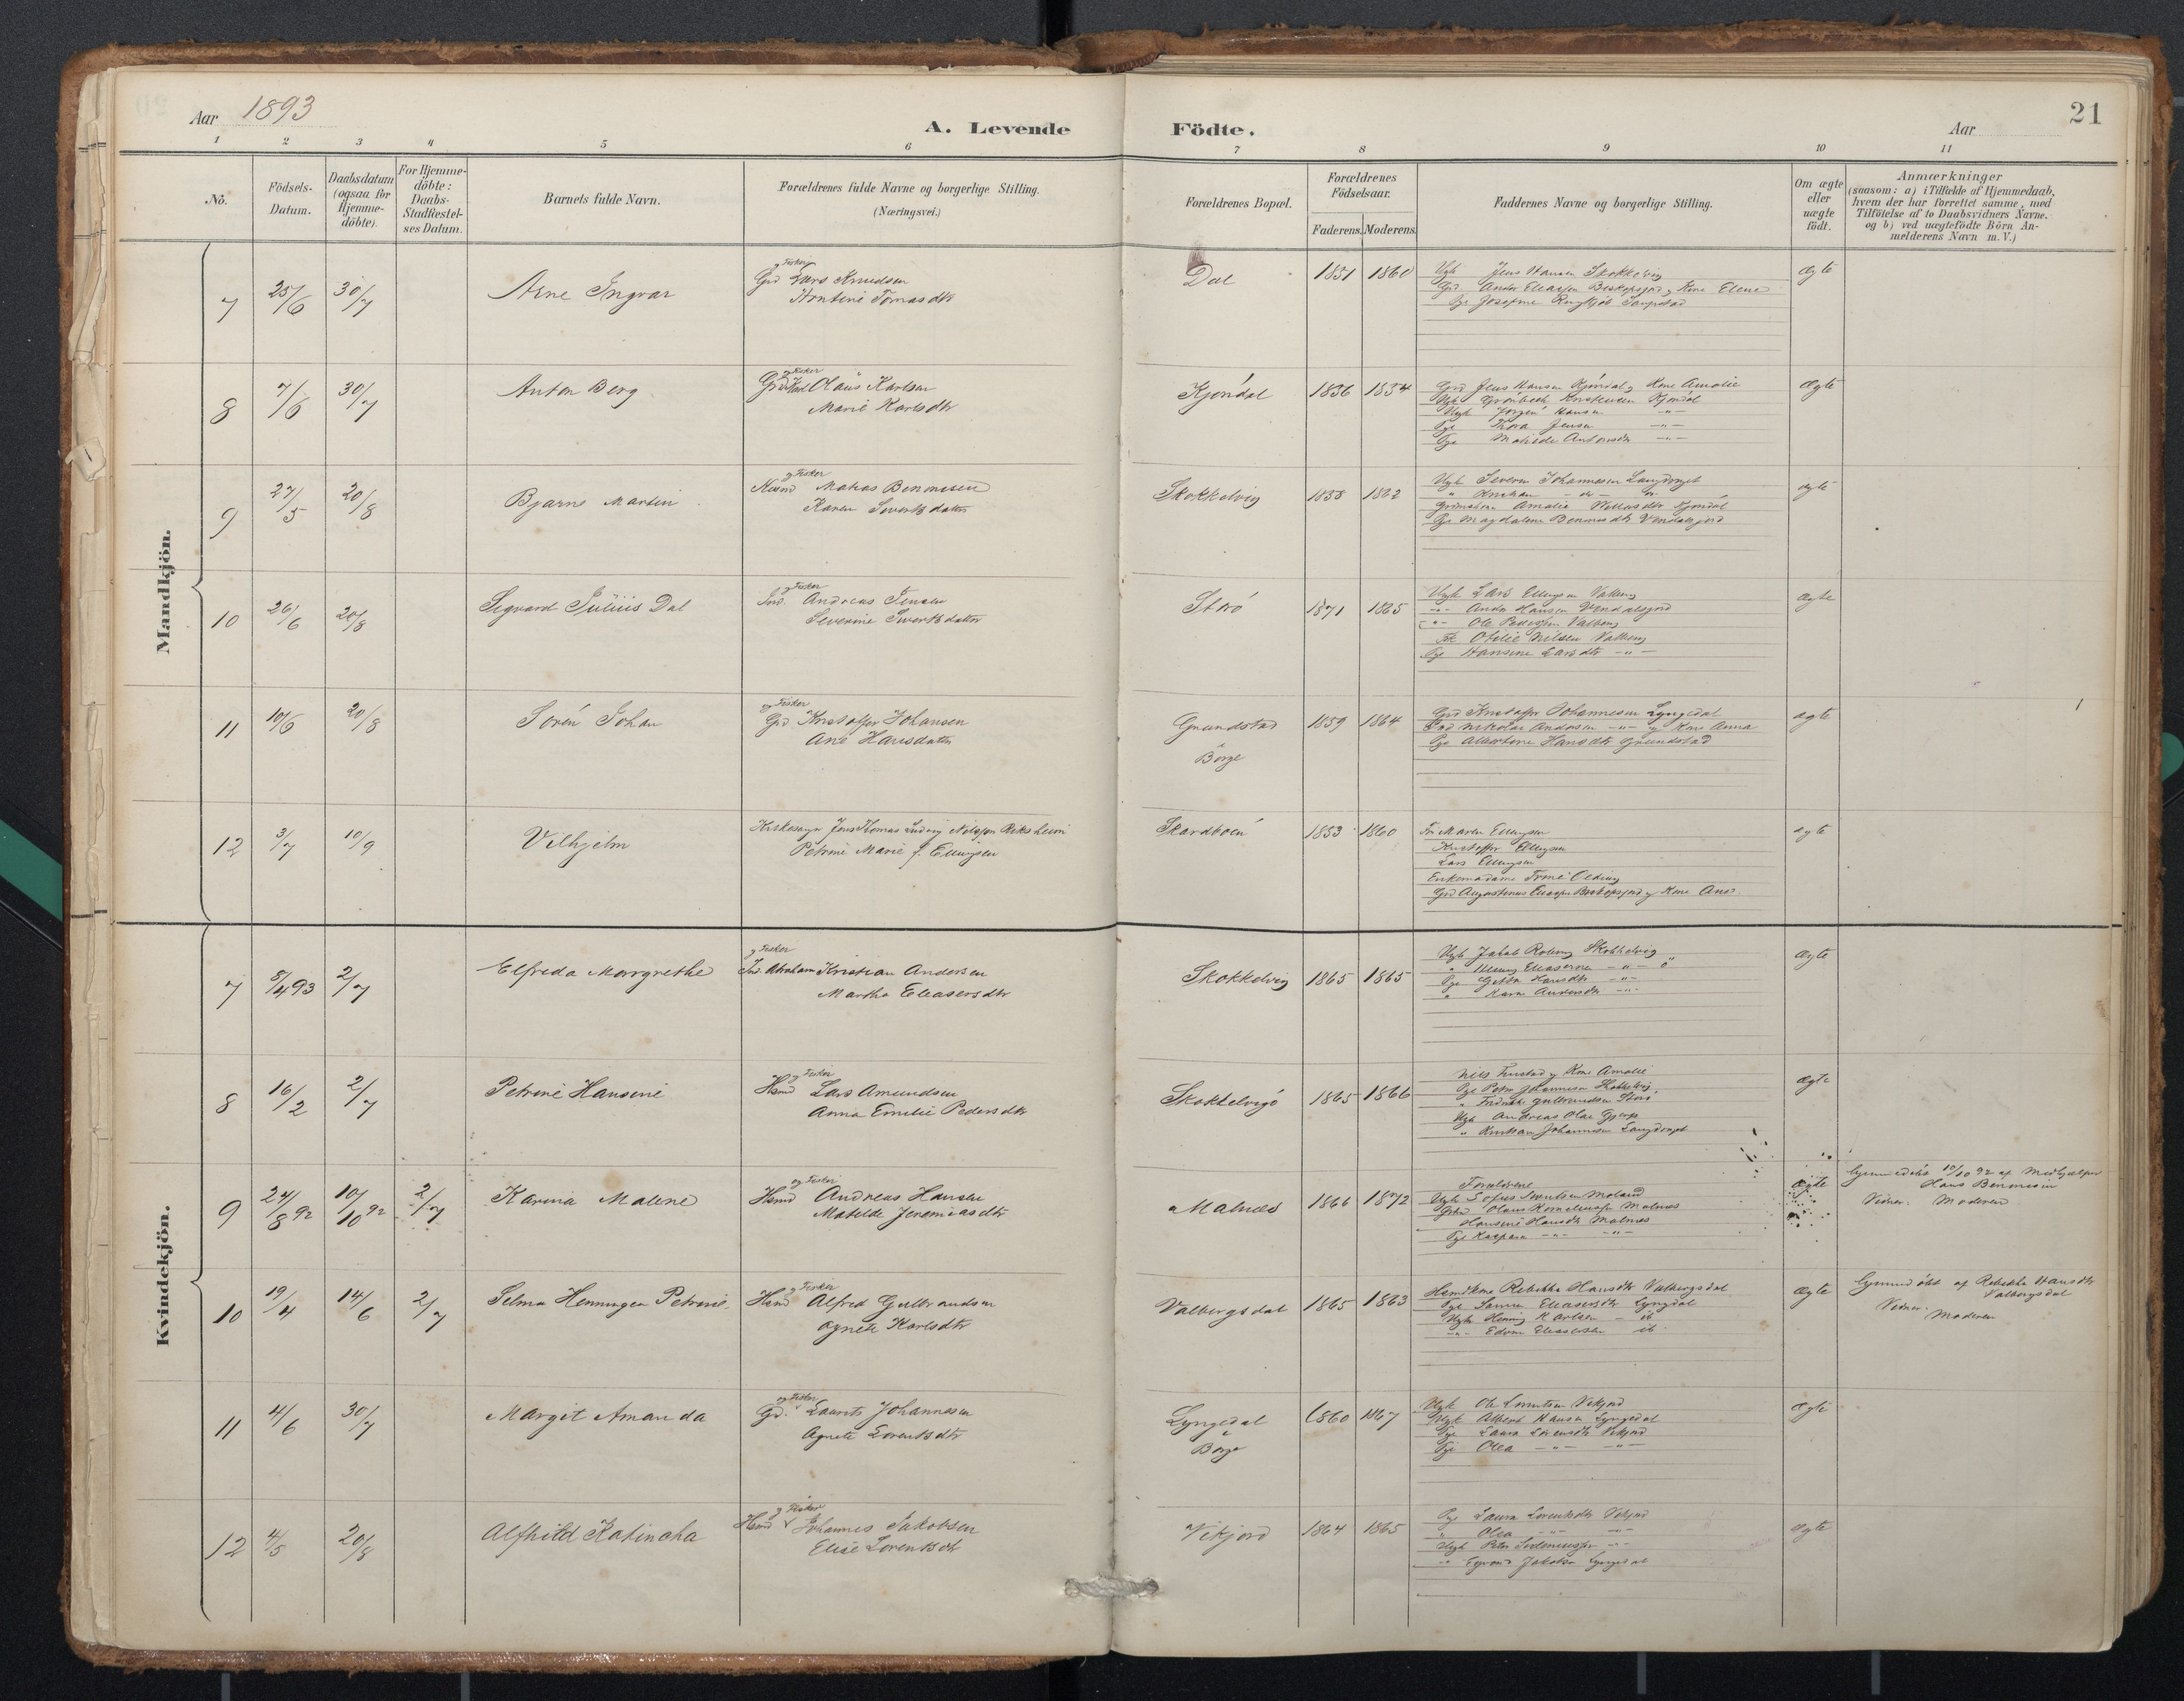 Aar 1893
A. Levende Födte.
Aar
21
1 2 3 4 5 6 7 8 9 10 11
No.
Födsels-Datum.
Daabsdatum (ogsaa for Hjemme-döbte).
For Hjemme-döbte: Daabs-Stadfæstel-ses Datum.
Barnets fulde Navn.
Forældrenes fulde Navne og borgerlige Stilling.
(Næringsvei.)
Forældrenes Bopæl.
Forældrenes Födselsaar.
Faderens. Moderens.
Faddernes Navne og borgerlige Stilling.
Om ægte eller uægte födt.
Anmærkninger
(saasom: a) i Tilfælde af Hjemmedaab,
hvem der har forrettet samme, med
Tilföielse af to Daabsvidners Navne.
og b) ved uægtefödte Börn An-
melderens Navn m.V.)
Mandkjön.
7 25/6 30/7 Arne Ingvar
og Fisker
Grd Lars Knudsen
Tomasdtr
Dal 1851 1860
Ugk Jens Hansen Skokkelvig
Grd Ander Eliassen Biskopsjord og Kone Elene
Pge Josefine
ægte
8 7/6 30/7 Anton Berg
og Fisker
Grd Karl Olaus Karlsen
Marie Karlsdtr
Kjöndal 1856 1854
Grd Jens Hansen Kjöndal og Kone Amalie
Ugk Grönbeck Kristensen Kjöndal
Ugk Jörgen Hansen -"-
Pge Thora Jensen -"-
Pge Matilde Antonsdtr -"-
ægte
9 27/5 20/8 Bjarne Martin
og Fisker
Matias Benonisen
Karen Sivertsdatter
Skokkelvig 1858 1862
Ugk Severin Johannesen Langdraget
" Kristian - do -
Amalie Kjöndal
Pge Magdalene Benonisdtr Vendalsjord
ægte
10 26/6 20/8 Sigvard Julius Dal
og Fisker
Ind. Andreas Jensen
Severine Sivertsdatter
Storö 1871 1865
Ugk Lars Ellingsen Valberg
-"- Ander Hansen Vendalsjord
-"- Ole Pedersen Valberg
Otelie Nilsen Valberg
Pge Hansine Larsdtr -"-
ægte
11 10/6 20/8 Sören Johan
og Fisker
Grd Kristoffer Johansen
Ane Hansdatter
Grundstad
i
Borge
1859 1864
Grd Kristoffer Johannesen Lyngedal
Grd Nikolai Andersen -"- og Kone Anna
Pge Albertine Hansdtr Grundstad
ægte
12 3/7 10/9 Vilhjelm
Kirkesanger Jens Thomas Ludvig Nilssen Riksheim
Petrine Marie f. Ellingsen
Skardboen 1853 1860
Fr. Maren Ellingsen
Kristoffer Ellingsen
Lars Ellingsen
Enkemadame Trine Olding
Grd Augustinus Eliassen Biskopsjord og Kone Ane
ægte
Kvindekjön.
7 8/4 93 2/7 Elfreda Margrethe
og Fisker
Ind. Abraham Kristian Andersen
Martha Eleasersdtr
Skokkelvig 1865 1865
Ugk Jakob Skokkelvig
" Henrik Eleasersen -"-
Pge Gjetta Hansdtr -"-
" Karen Andersdtr -"-
ægte
8 16/2 2/7 Petrine Hansine
og Fisker
Hsmd Lars Amundsen
Anna Emilie Pedersdtr
Skokkelvigö 1865 1866
Nils og Kone Amalie
Pge Petra Johannesen Skokkelvig
" Fredrikke Gulbrandsen Storö
Ugk Andreas Olai
" Kristian Johannesen Langdraget
ægte
9 24/8 92 10/10 92 2/7 Karina Malene
og Fisker
Hsmd Andreas Hansen
Matelde Jeremiasdtr
Malnæs 1866 1872
Forældrene
Ugk Sofus
Olaus Korneliussen Malnæs
Hansine Hansdtr Malnæs
Pge Kaspara -"- -"-
ægte
Hjemmedöbt 10/10 92 af Medhjælper
Hans Benonisen
Vidner: Moderen
10 19/4 14/6 2/7 Selma Henningea Petrine
og Fisker
Hsmd Alfred Gulbrandsen
Agnete Karlsdtr
Valbergsdal 1865 1863
Hsmdkone Rebekka Hansdtr Valbergsdal
Pge Eleasersdtr Lyngdal
Ugk Henning Karlsen - ib
-"- Edvin Eleasersen ib
ægte
Hjemmedöbt af Rebekka Hansdtr
Valbergsdal
Vidner:
Moderen
11 4/6 30/7 Margit Amanda
og Fisker
Grd. Laurits Johannesen
Agnete Lorentsdtr
Lyngedal
i
Borge
1860 1867
Ugk Ole Lorentsen Vikjord
Ugk Albert Hansen Lyngedal
Pge Laura Lorentsdtr Vikjord
Pge Olea -"- -"-
ægte
12 4/5 20/8 Alfhild Katincha
og Fisker
Hsmd Johannes Jakobsen
Elise Lorentsdtr
Vikjord 1864 1865
Pge Laura Lorentsdtr Vikjord
" Olea -"- -"-
Ugk Peter -"-
-"- Jakobsen Lyngedal
ægte